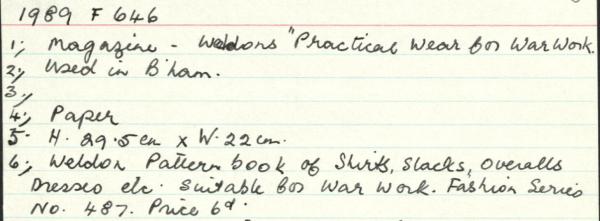 1989 F 646
1; Magazine - Weldons "Practical Wear for War Work.
2; Used in B'ham.
3;
4; Paper
5. H. 29.5cm x W. 22cm.
6; Weldon Pattern book of Shirts, Slacks, Overalls
Dresses etc. Suitable for War Work. Fashion Series
No. 487. Price 6d.